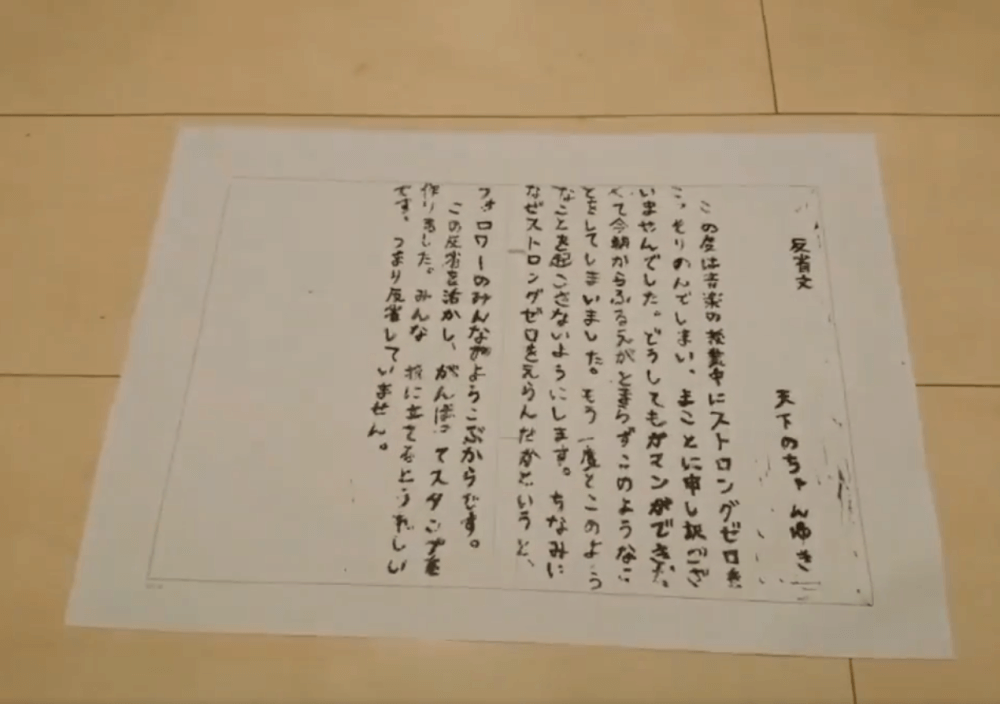 反省文
天下のちゃんゆき
この度は音楽の授業中にストロングゼロを
こっそりのんでしまい、まことに申し訳ござ
いませんでした。どうしてもガマンができな
くて今朝からふるえがとまらずこのようなこ
とをしてしまいました。もう一度とこのよう
なことを起こさないようにします。ちなみに
なぜストロングゼロをえらんだかというと、
フォロワーのみんながよろこぶからです。
この反省を活かし、がんばってスタンプを
作りました。みんな 役に立てるとうれしい
です。つまり反省していません。